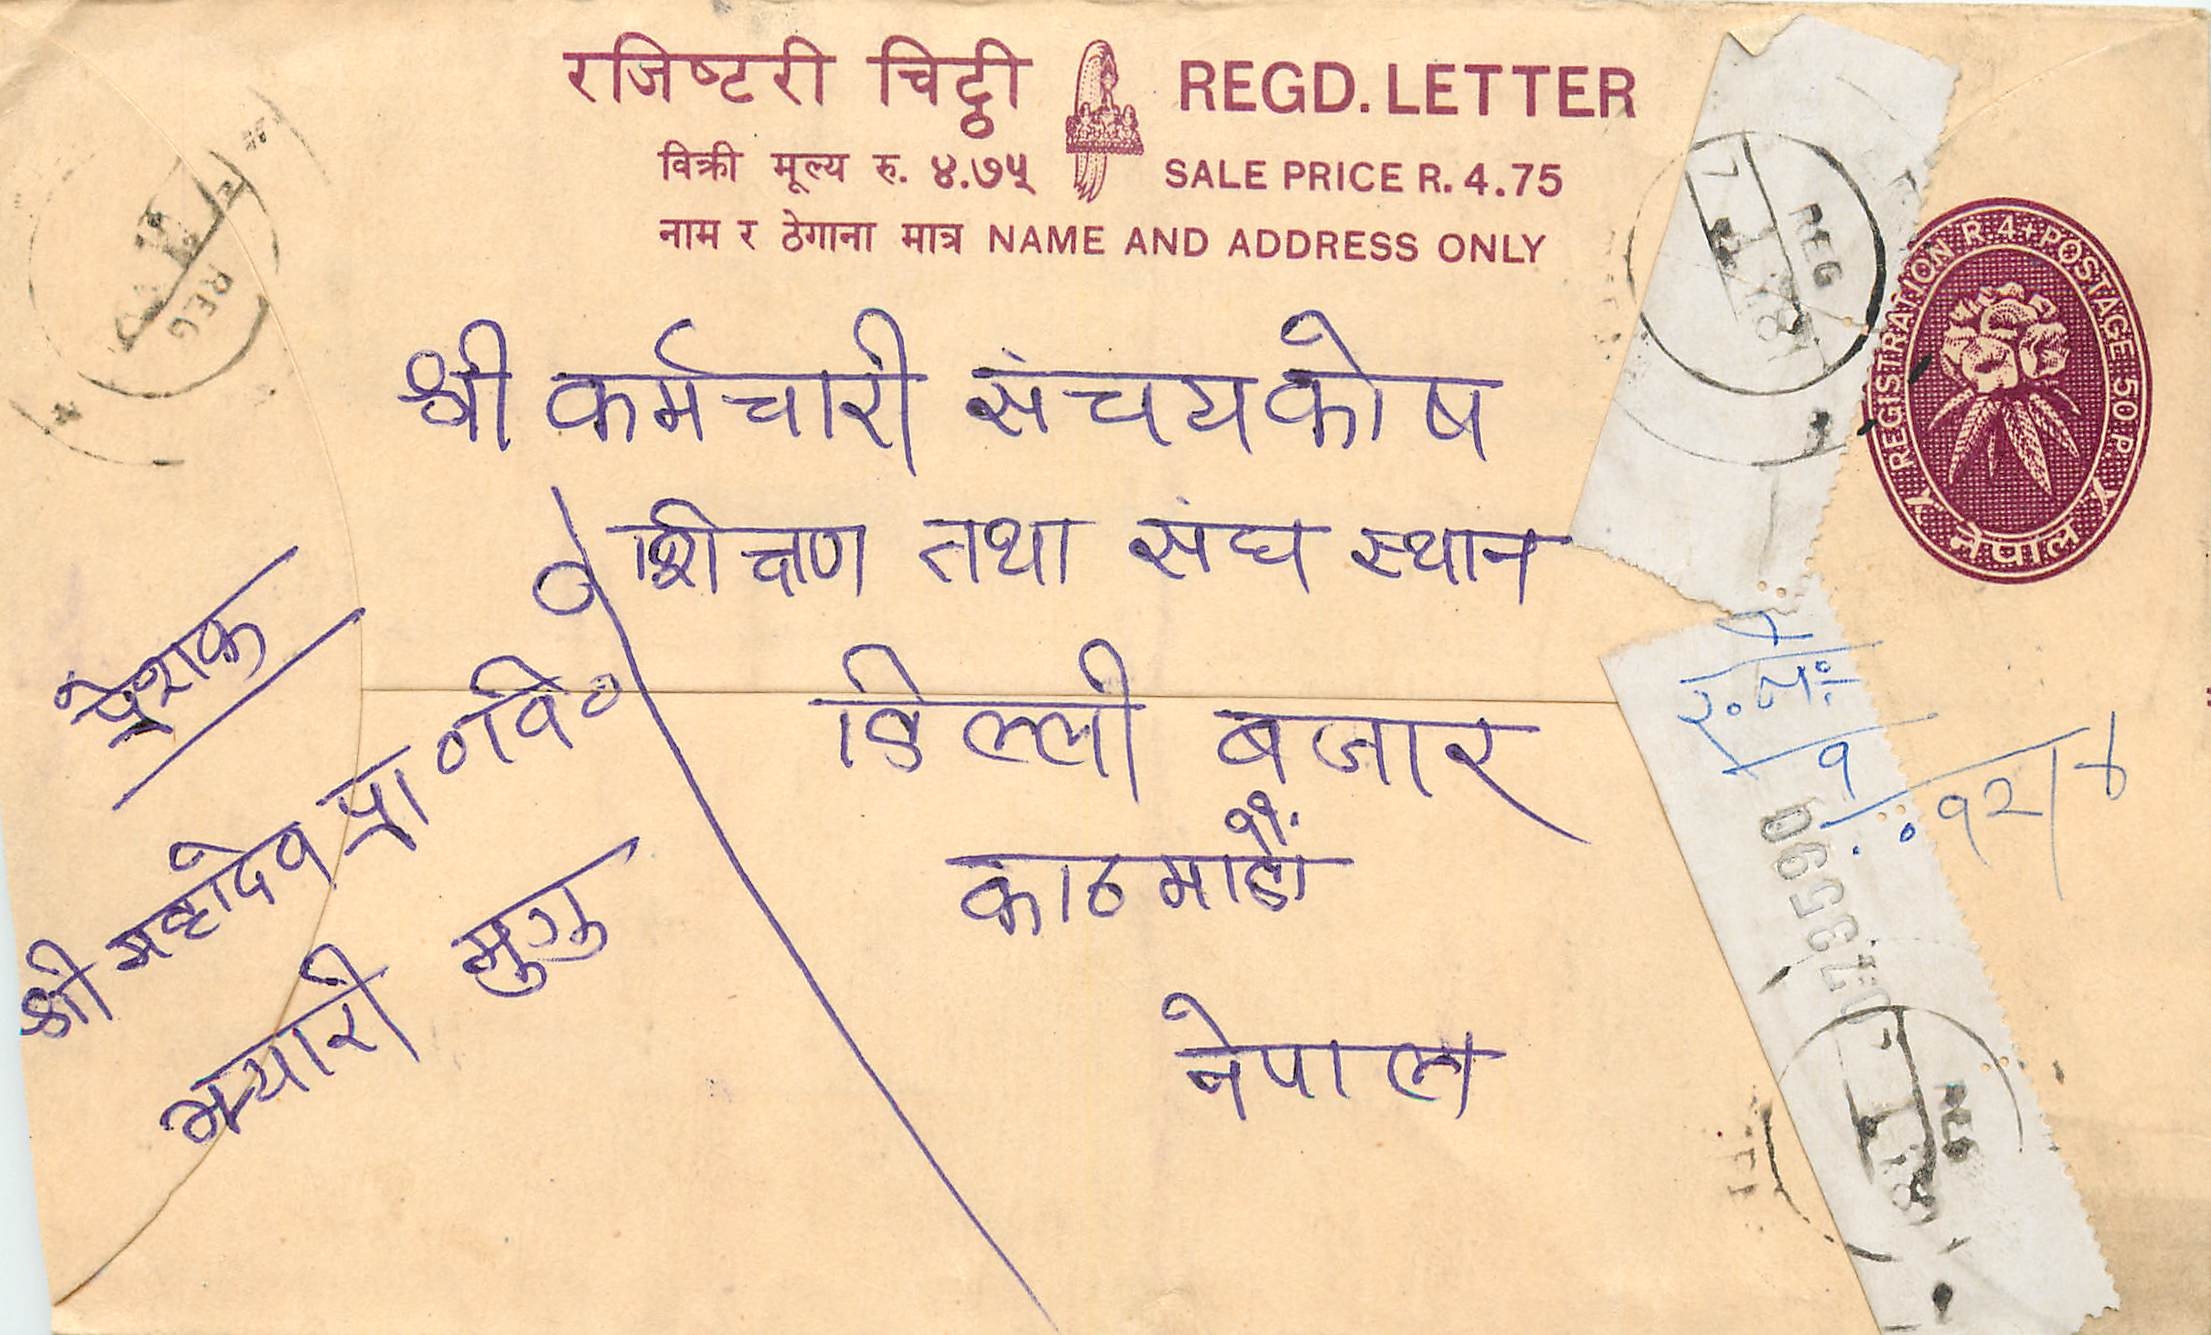 रजिष्टरी चिट्ठी REGD. LETTER
विक्री मूल्य रु. ४.७५ SALE PRICE R. 4.75
नाम र ठेगाना मात्र NAME AND ADDRESS ONLY
REGISTRATION R.4+POSTAGE 50 P.
नेपाल
REG
REG
श्री कर्मचारी संचयकोष
शिक्षण तथा संघ स्थान
डिल्ली बजार
काठमाडौं
नेपाल
प्रेशक
श्री महादेव प्रा०वि०
भ्यारी मुगु
र.नं.